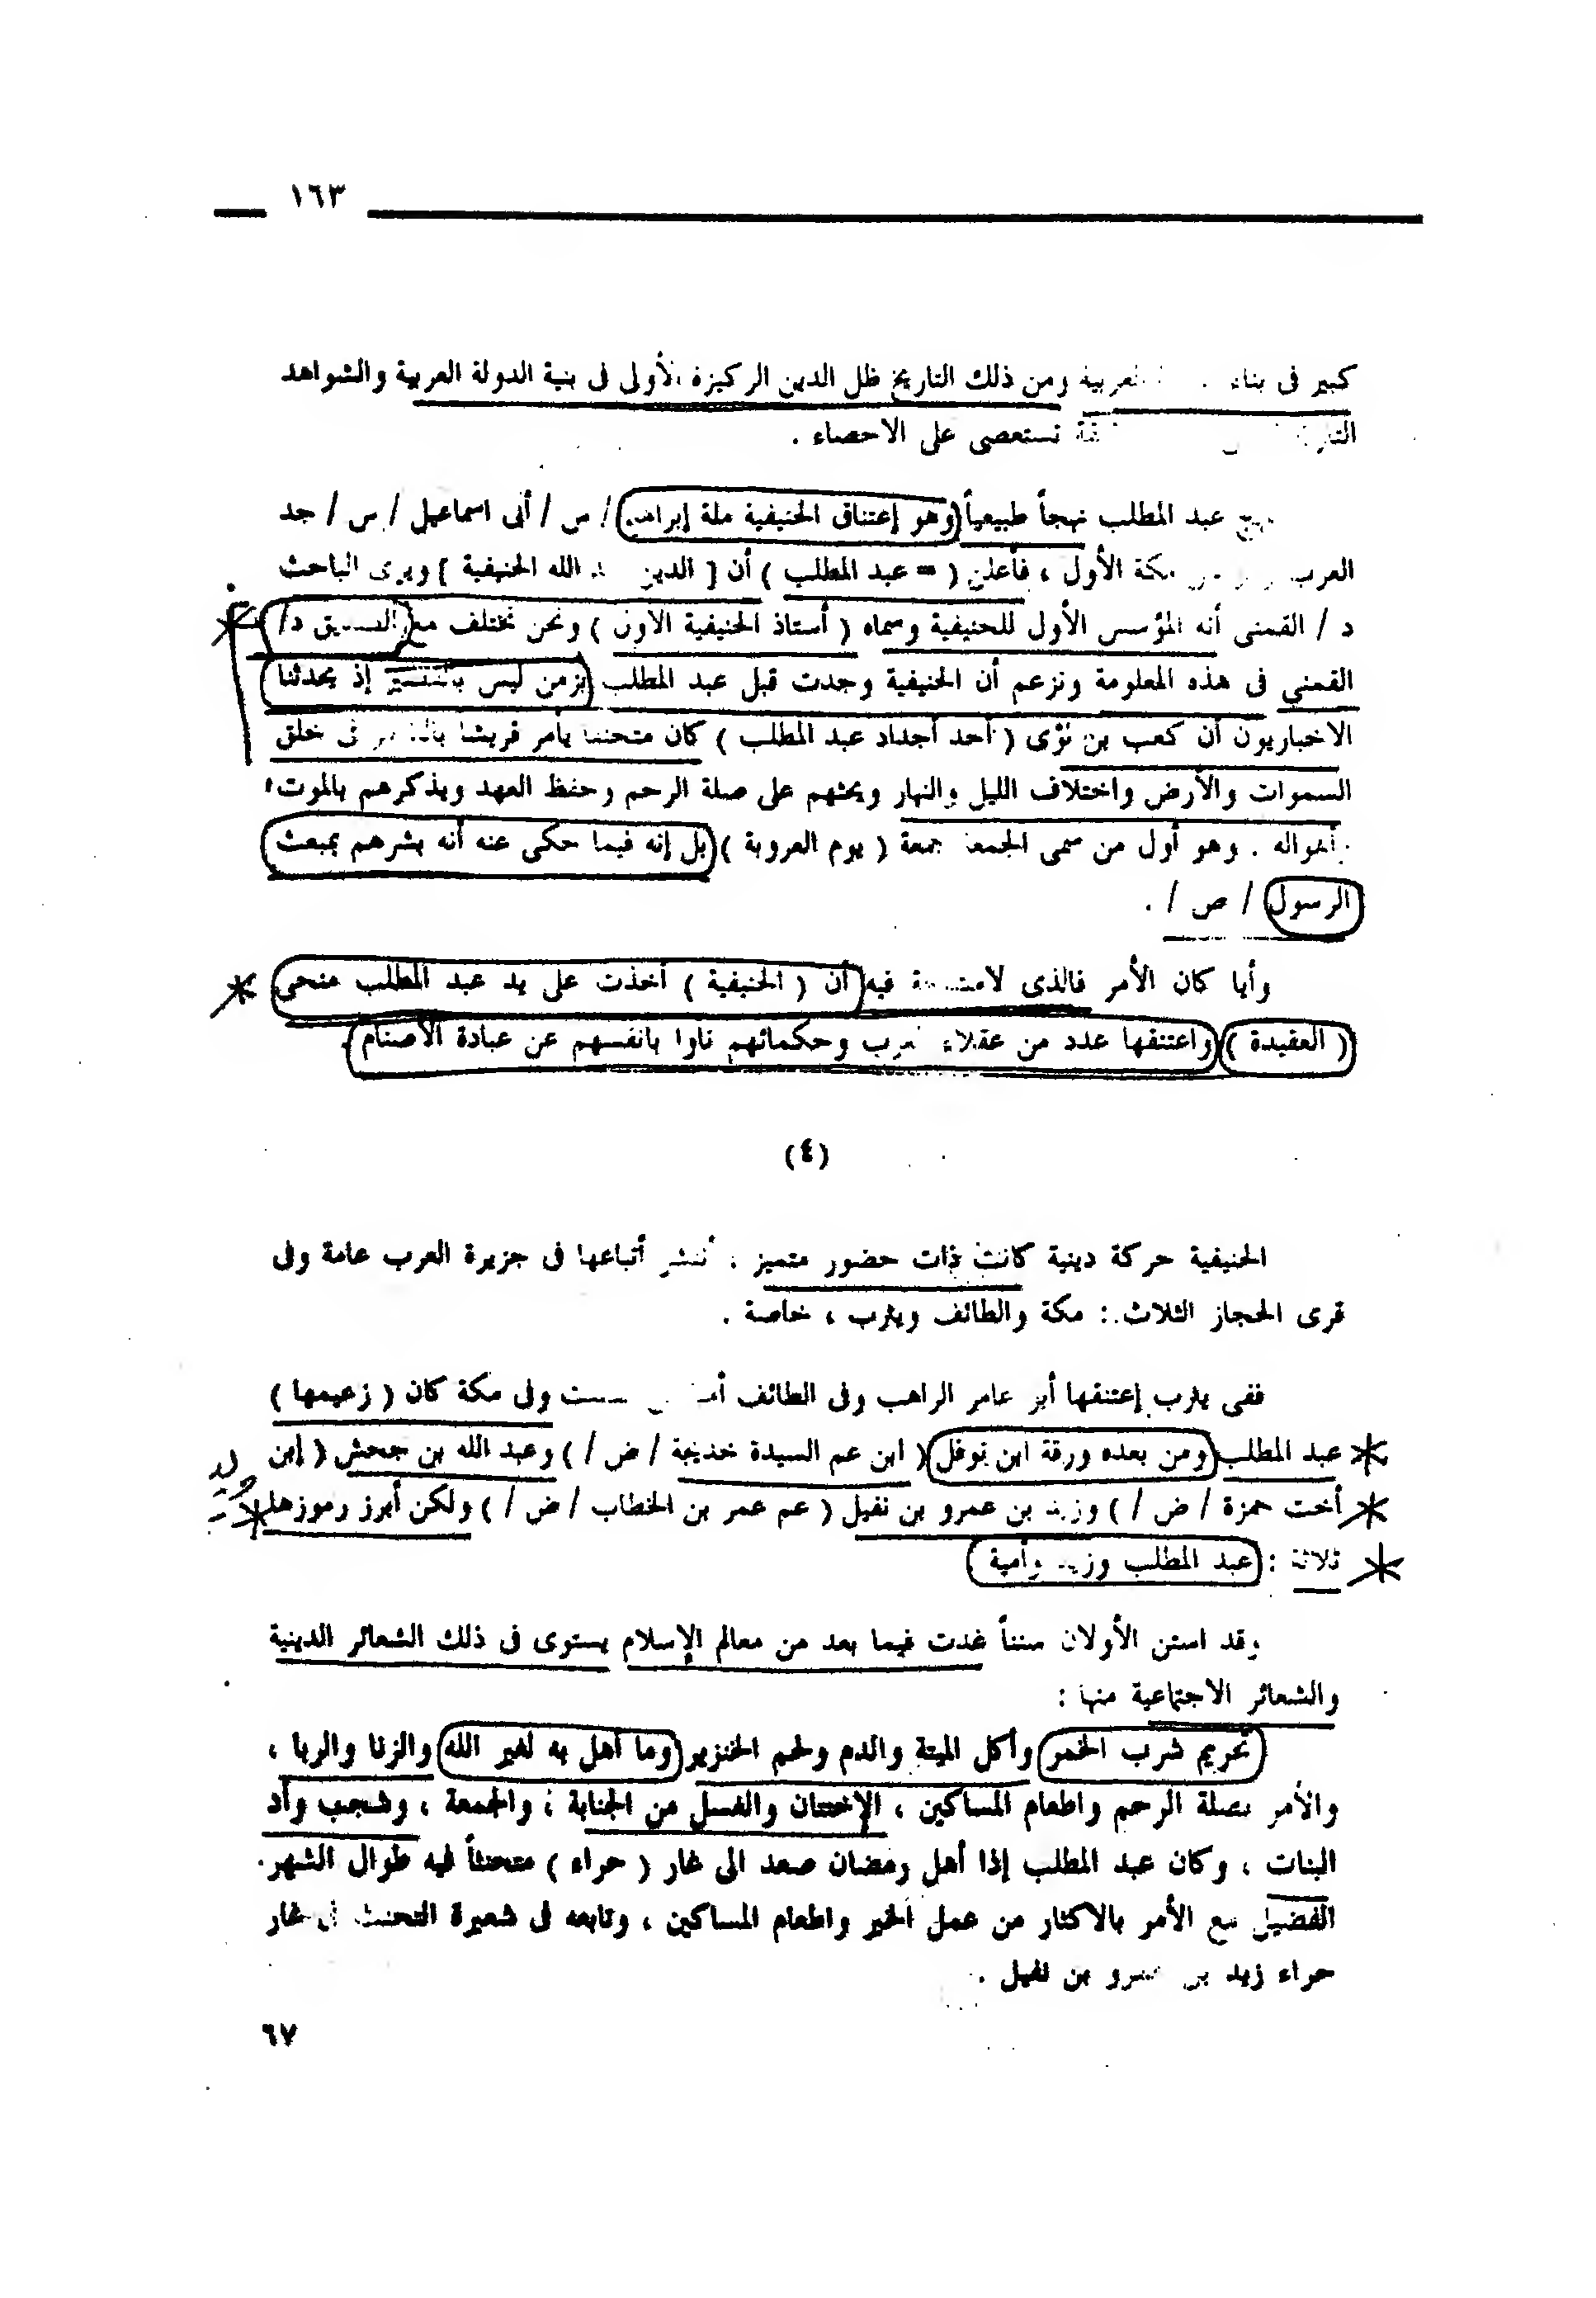 ١٦٣
كبير فى بناء العربية ومن ذلك التاريخ ظل الدين الركيزة الأولى فى بنية الدولة العربية والشواهد
تستعصى على الاحصاء .
عبد المطلب نهجاً طبيعياً ( وهو إعتناق الحنيفية ملة إبراهيم / س / أبى اسماعيل / س / جد
العرب مكة الأول ، فأعلن ( = عبد المطلب ) أن [ الدين الله الحنيفية ] ويرى الباحث
د / القمنى أنه المؤسس الأول للحنيفية وسماه ( أستاذ الحنيفية الأول ) ونحن نختلف مع الصديق د/
القمنى فى هذه المعلومة ونزعم أن الحنيفية وجدت قبل عبد المطلب بزمن ليس بالقصير إذ يحدثنا
الاخباريون أن كعب بن لؤى ( أحد أجداد عبد المطلب ) كان متحنفا يأمر قريشا فى خلق
السموات والأرض واختلاف الليل والنهار ويحثهم على صلة الرحم وحفظ العهد ويذكرهم بالموت
وأهواله . وهو أول من سمى الجمعة جمعة ( يوم العروبة ) بل إنه فيما حكى عنه أنه بشرهم بمبعث
الرسول / ص / .
وأيا كان الأمر فالذى فيه أن ( الحنيفية ) أخذت على يد عبد المطلب منحى
( العقيدة ) واعتنقها عدد من عقلاء العرب وحكمائهم نأوا بانفسهم عن عبادة الأصنام .
(٤)
الحنيفية حركة دينية كانت ذات حضور متميز ، أتباعها فى جزيرة العرب عامة وفى
قرى الحجاز الثلاث : مكة والطائف ويثرب ، خاصة .
ففى يثرب إعتنقها أبو عامر الراهب وفى الطائف وفى مكة كان ( زعيمها )
عبد المطلب ومن بعده ورقة ابن نوفل ( ابن عم السيدة خديجة / ض / ) وعبد الله بن جحش ( إبن
أخت حمزة / ض / ) وزيد بن عمرو بن نفيل ( عم عمر بن الخطاب / ض / ) ولكن أبرز رموزها
ثلاثة : عبد المطلب وزيد وأمية .
وقد استن الأولان سنناً غدت فيما بعد من معالم الإسلام يستوى فى ذلك الشعائر الدينية
والشعائر الاجتماعية منها :
تحريم شرب الخمر وأكل الميتة والدم ولحم الخنزير وما أهل به لغير الله والزنا والربا ،
والأمر بصلة الرحم واطعام المساكين ، الإختتان والغسل من الجنابة ، والجمعة ، وشجب وأد
البنات ، وكان عبد المطلب إذا أهل رمضان صعد الى غار ( حراء ) متحنثاً فيه طوال الشهر
الفضيل مع الأمر بالاكثار من عمل الخير واطعام المساكين ، وتابعه فى شعيرة التحنث فى غار
حراء زيد بن عمرو بن نفيل .
٦٧